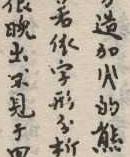 造加火的熊
若依字形分析
很晚出不見于四